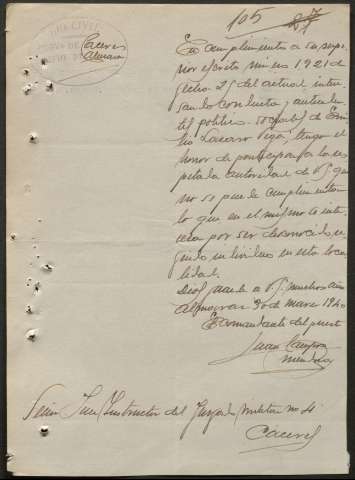 105 27
Caceres
En cumplimiento a su supe
rior escrito num 1921 de
fecha 25 del actual intere
sando conducta y antece
tes politico social de Emi
lio Lazaro Vega, tengo el
honor de participar a la res
petable autoridad de V.S. que
no se puede cumplimentar
lo que en el mismo se inte
resa por ser desconocido
individuo en esta loca
lidad.
Dios guarde a V.S. muchos años
Almaraz 30 de marzo 1940
El comandante del puesto
Juan
Señor Juez Instructor del Juzgado Militar nº 4
Caceres